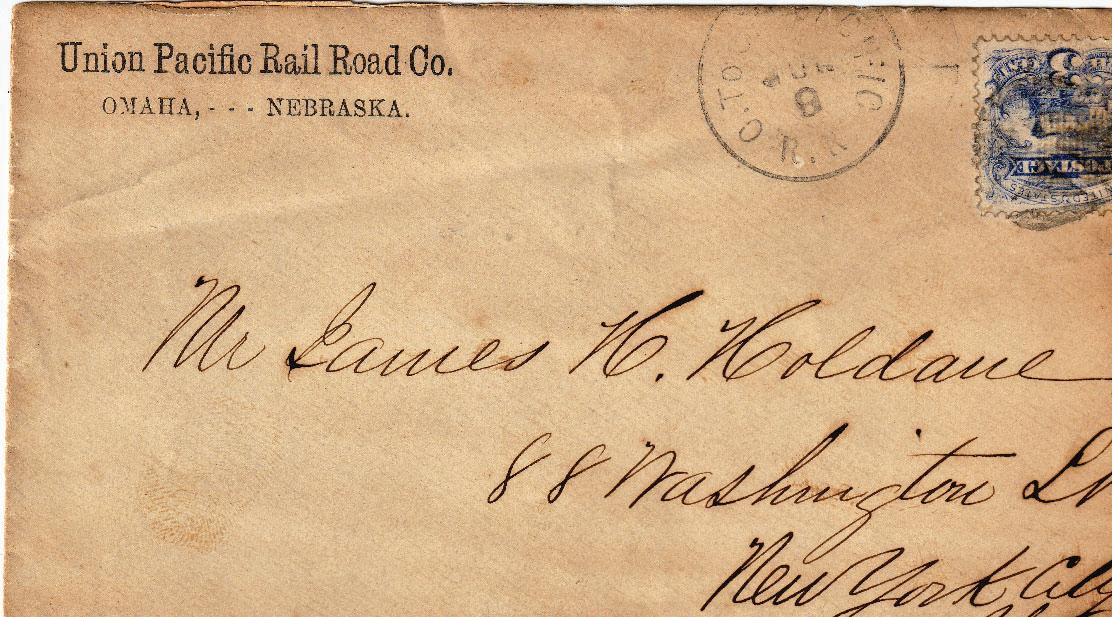 Union Pacific Rail Road Co.
OMAHA, - - - NEBRASKA.
8
R.R
POSTAGE
UNITED STATES
Mr James H. Holdane
88 Washington
New York City